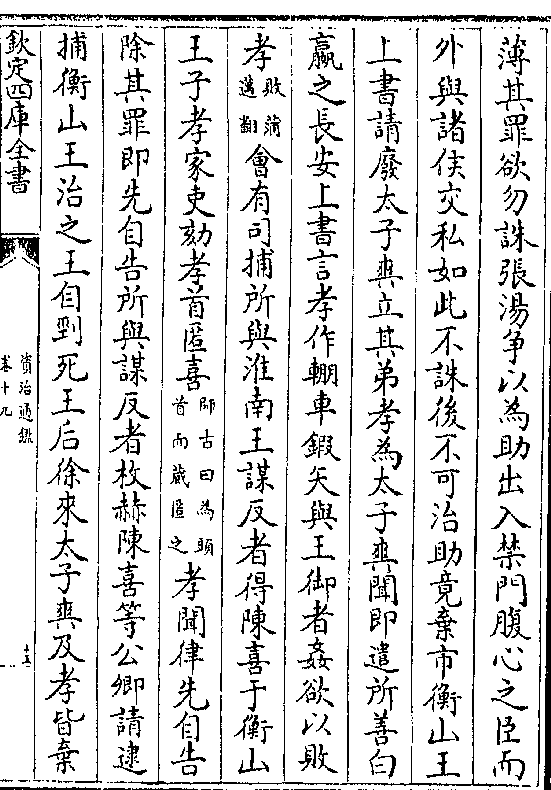 薄其罪欲勿誅張湯爭以為助出入禁門腹心之臣而
外與諸侯交私如此不誅後不可治助竟棄市衡山王
上書請廢太子爽立其弟孝為太子爽聞即遣所善白
嬴之長安上書言孝作輣車鍜矢與王御者姦欲以敗
孝敗蒲邁翻會有司捕所與淮南王謀反者得陳喜于衡山
王子孝家吏劾孝首匿喜師古曰為頭首而藏匿之孝聞律先自告
除其罪即先自告所與謀反者枚赫陳喜等公卿請逮
捕衡山王治之王自剄死王后徐來太子爽及孝皆棄
欽定四庫全書
資治通鑑
卷十九
十五